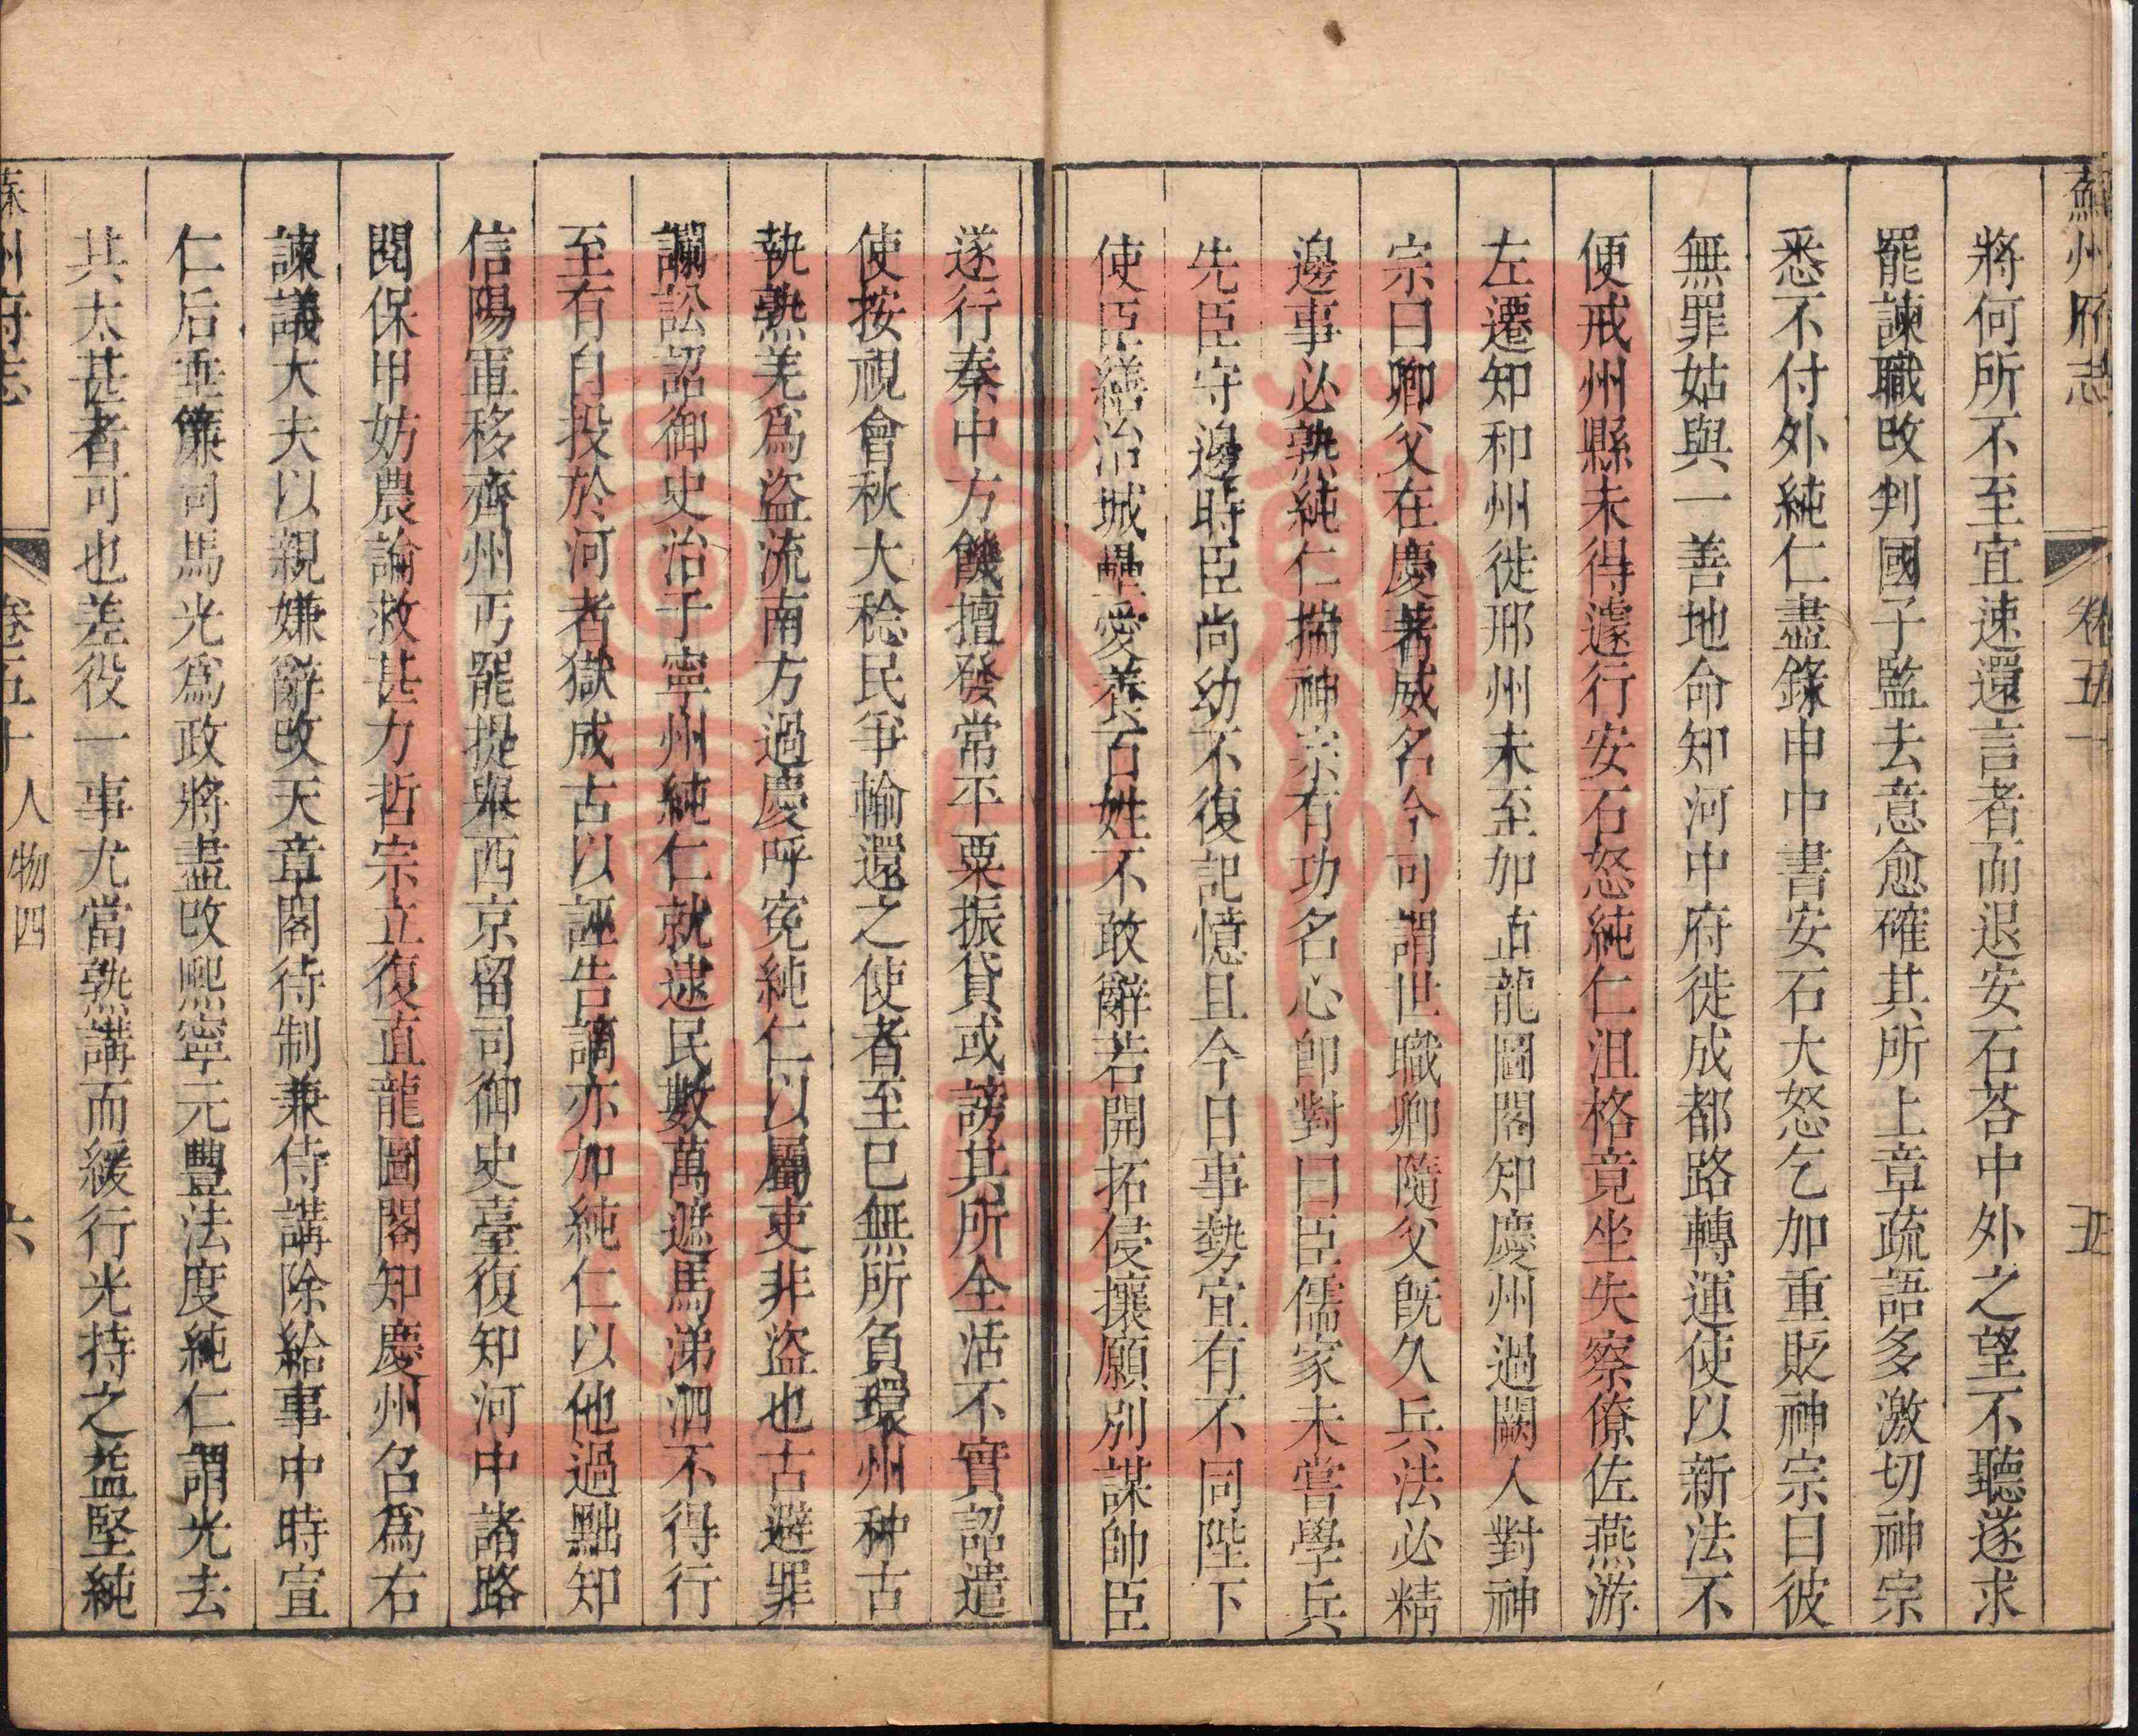 蘇州府志 卷五十 五
將何所不至宜速還言者而退安石荅中外之望不聽遂求
罷諫職改判國子監去意愈確其所上章疏語多激切神宗
悉不付外純仁盡錄申中書安石大怒乞加重貶神宗曰彼
無罪姑與一善地命知河中府徙成都路轉運使以新法不
便戒州縣未得遽行安石怒純仁沮格竟坐失察僚佐燕游
左遷知和州徙邢州未至加直龍圖閣知慶州過闕入對神
宗曰卿父在慶著威名今可謂世職卿隨父旣久兵法必精
邊事必熟純仁揣神宗有功名心卽對曰臣儒家未嘗學兵
先臣守邊時臣尚幼不復記憶且今日事勢宜有不同陛下
使臣繕治城壘愛養百姓不敢辭若開拓侵攘願別謀帥臣
遂行秦中方饑擅發常平粟振貸或謗其所全活不實詔遣
使按視會秋大稔民爭輸還之使者至已無所負環州种古
執熟羌爲盜流南方過慶呼寃純仁以屬吏非盜也古避罪
讕訟詔御史治于寧州純仁就逮民數萬遮馬涕泗不得行
至有自投於河者獄成古以誣告謫亦加純仁以他過黜知
信陽軍移齊州丐罷提舉西京留司御史臺復知河中諸路
閱保甲妨農論救甚力哲宗立復直龍圖閣知慶州召爲右
諫議大夫以親嫌辭改天章閣待制兼侍講除給事中時宣
仁后垂簾司馬光爲政將盡改熙寧元豐法度純仁謂光去
其太甚者可也差役一事尤當熟講而緩行光持之益堅純
蘇州府志 卷五十 人物四 六